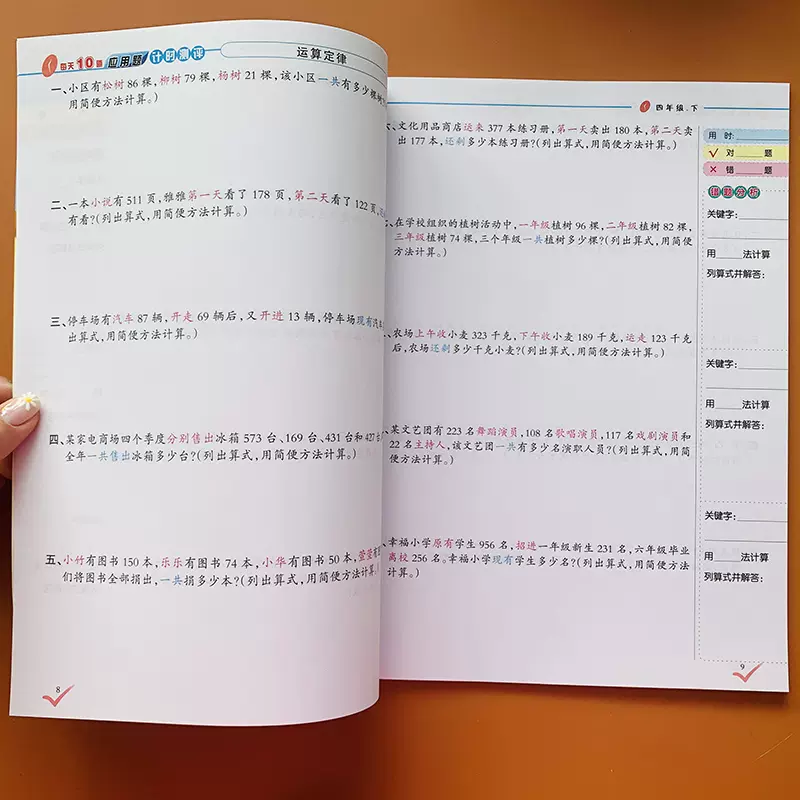 每天10道 应用题 计时测评
运算定律
一、小区有松树 86 棵,柳树 79 棵,杨树 21 棵,该小区一共有多少棵树
用简便方法计算。)
二、一本小说有 511 页,雅雅第一天看了 178 页,第二天看了 122 页,
有看?(列出算式,用简便方法计算。)
三、停车场有汽车 87 辆,开走 69 辆后,又开进 13 辆,停车场现有汽车
出算式,用简便方法计算。)
四、某家电商场四个季度分别售出冰箱 573 台、169 台、431 台和 427 台
全年一共售出冰箱多少台?(列出算式,用简便方法计算。)
五、小竹有图书 150 本,乐乐有图书 74 本,小华有图书 50 本,莹莹有
们将图书全部捐出,一共捐多少本?(列出算式,用简便方法计算。
8
四年级.下
六、文化用品商店运来 377 本练习册,第一天卖出 180 本,第二天卖
出 177 本,还剩多少本练习册?(列出算式,用简便方法计算。)
、在学校组织的植树活动中,一年级植树 96 棵,二年级植树 82 棵,
三年级植树 74 棵,三个年级一共植树多少棵?(列出算式,用简便
方法计算。)
、农场上午收小麦 323 千克,下午收小麦 189 千克,运走 123 千克
后,农场还剩多少千克小麦?(列出算式,用简便方法计算。)
、某文艺团有 223 名舞蹈演员,108 名歌唱演员,117 名戏剧演员和
22 名主持人,该文艺团一共有多少名演职人员?(列出算式,用简
便方法计算。)
、幸福小学原有学生 956 名,招进一年级新生 231 名,六年级毕业
离校 256 名。幸福小学现有学生多少名?(列出算式,用简便方法
计算。)
用 时:
✓ 对 题
× 错 题
错题分析
关键字:
用 法计算
列算式并解答:
关键字:
用 法计算
列算式并解答:
关键字:
用 法计算
列算式并解答:
9